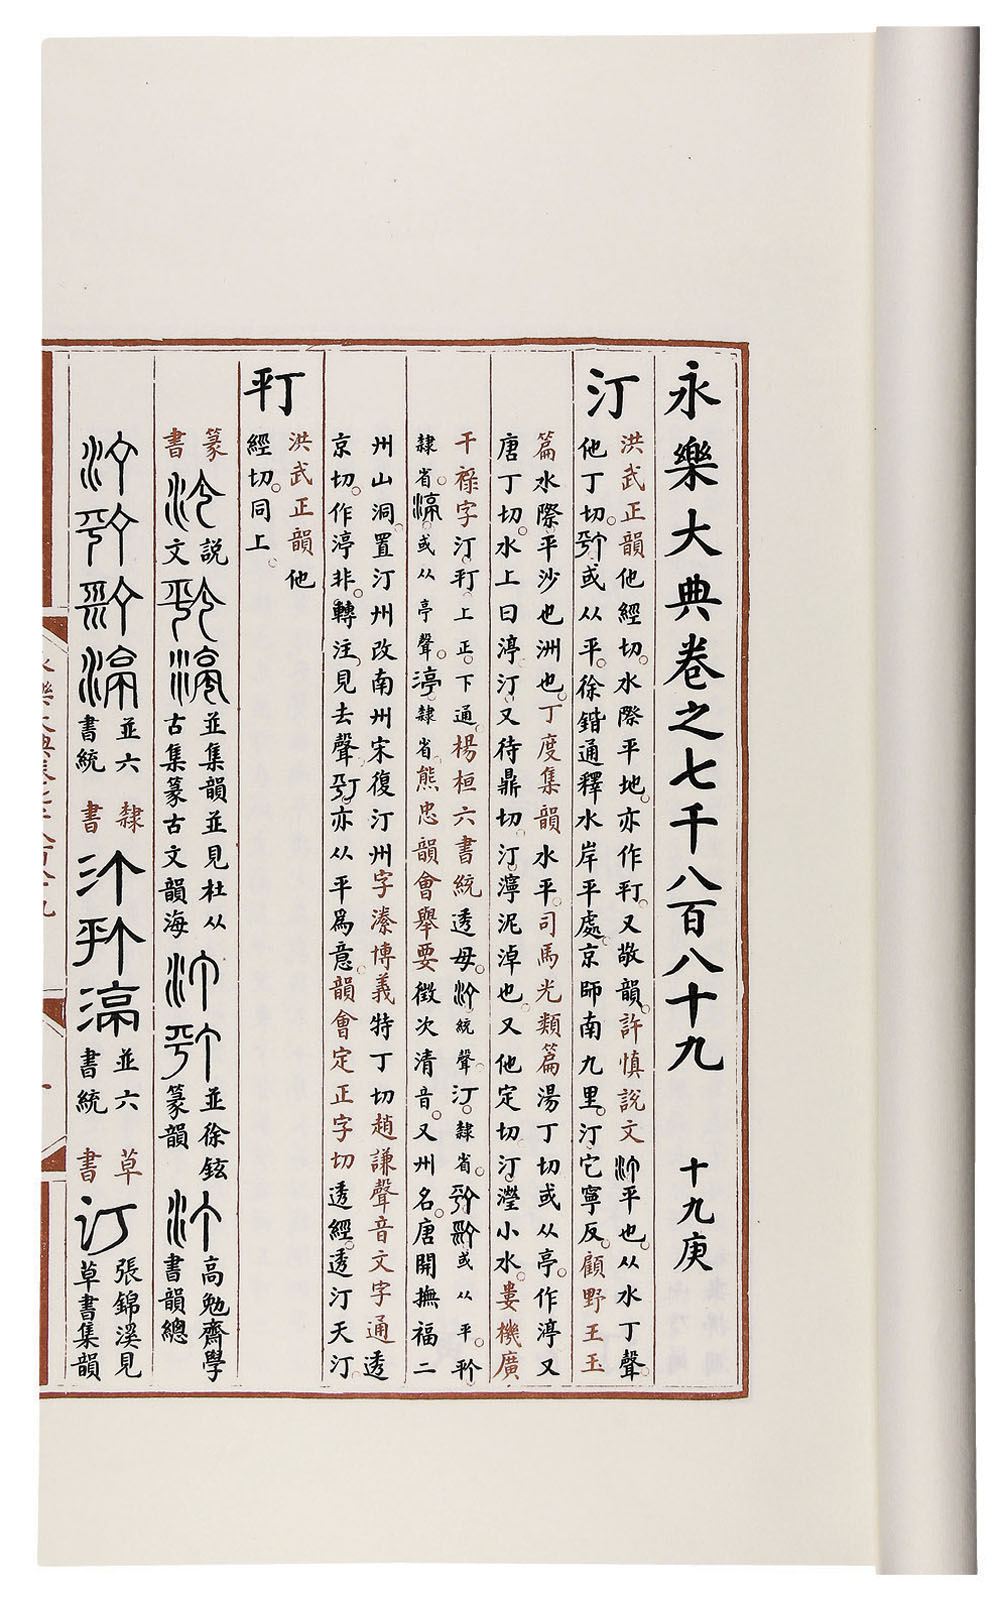 永樂大典卷之七千八百八十九 十九庚
汀
洪武正韻他經切。水際平地。亦作𠄚。又敬韻。許慎說文 平也。从水丁聲。
他丁切。 或从平。徐鍇通釋水岸平處。京師南九里。汀它寧反。顧野王玉
篇水際平沙也洲也。丁度集韻水平。司馬光類篇湯丁切或从亭。作渟又
唐丁切。水上曰渟。汀又待鼎切。汀濘泥淖也。又他定切汀瀅小水。婁機廣
干祿字汀 上正。下通。楊桓六書統透母。 統聲。汀。隸省。 或从平。
隸省。 或从亭聲。渟隸省。熊忠韻會舉要徵次清音。又州名。唐開撫福二
州山洞。置汀州改南州宋復汀州字溱博義特丁切趙謙聲音文字通透
京切。作渟非。轉注。見去聲。 亦从平爲意。韻會定正字切透經。透汀天汀
洪武正韻他
經切。同上。
篆書
說文
並集韻並見杜从
古集篆古文韻海
並徐鉉
篆韻
高勉齋學
書韻總
並六
書統
隸書
並六
書統
草書
汀
張錦溪見
草書集韻